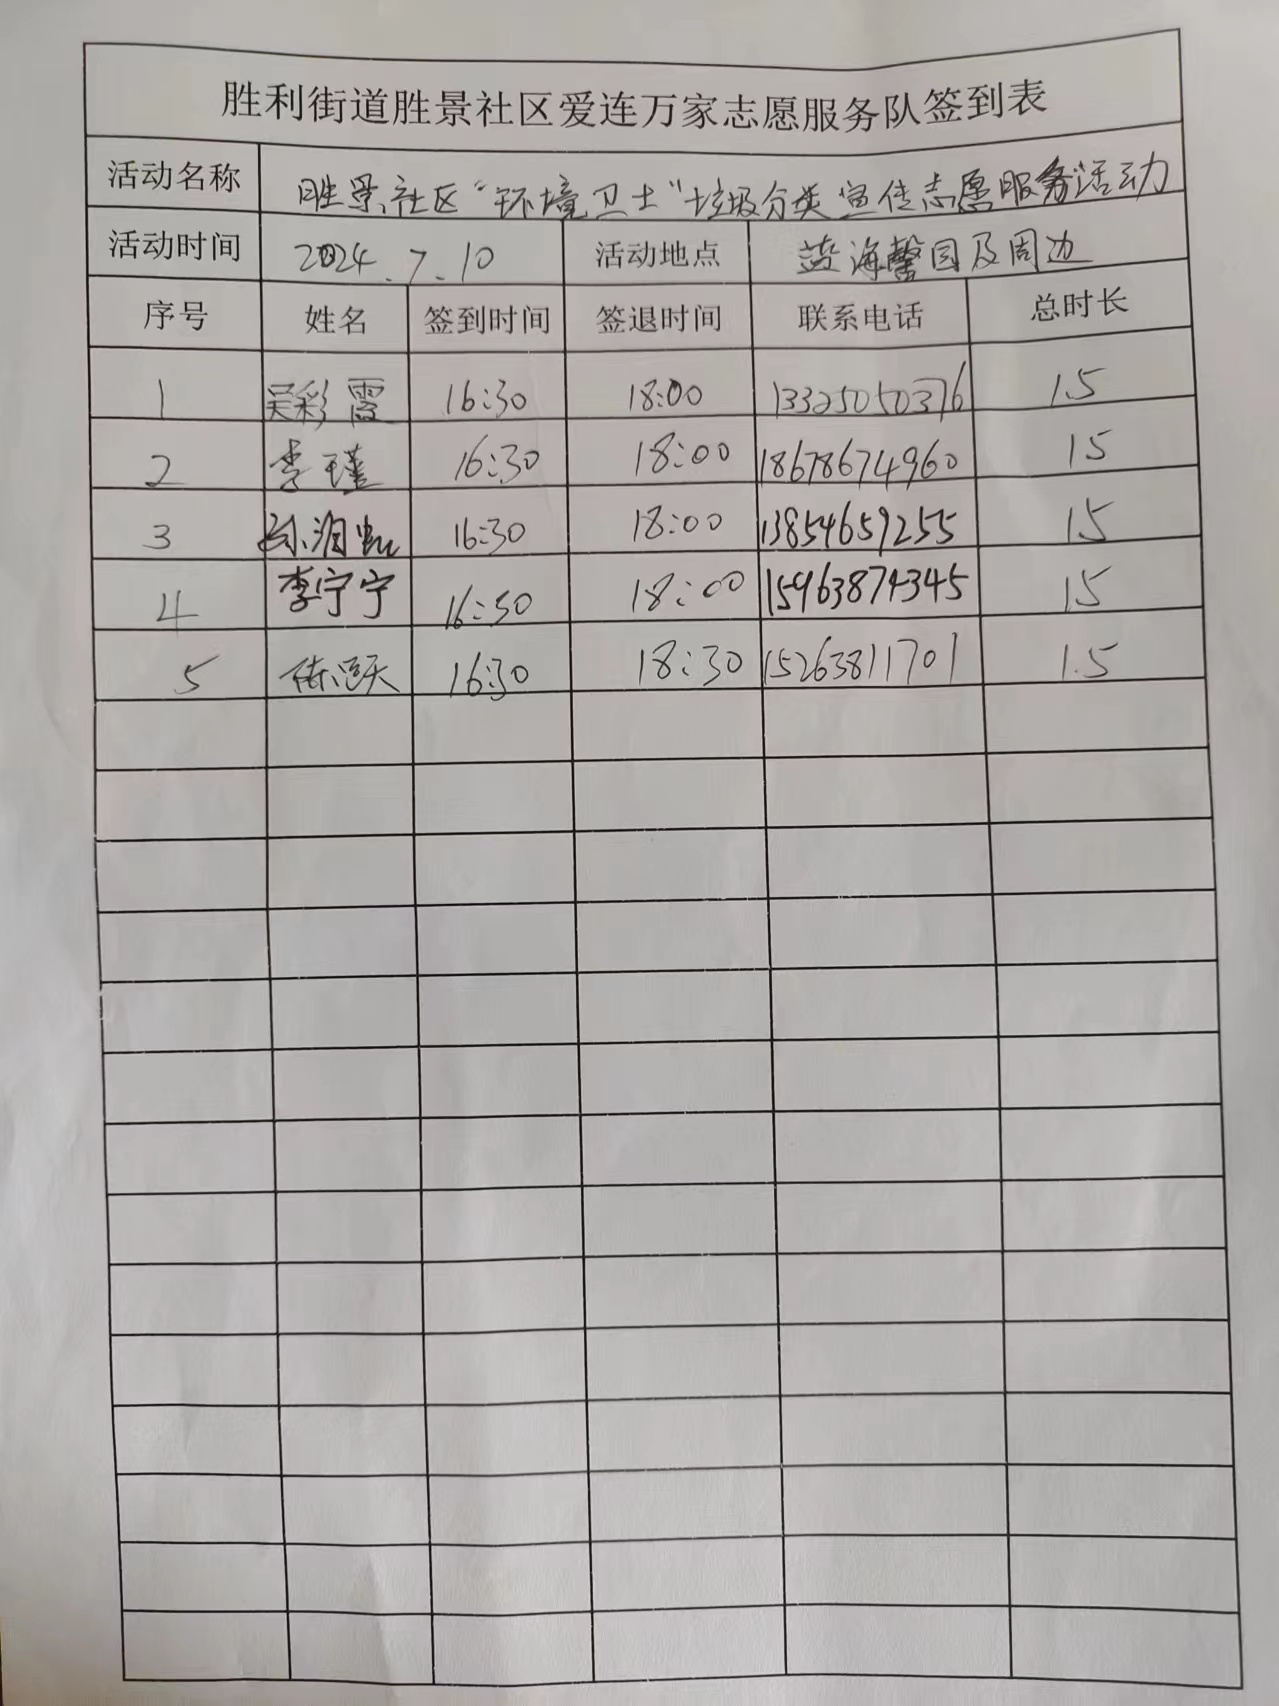 胜利街道胜景社区爱连万家志愿服务队签到表
活动名称 胜景社区“环境卫士”垃圾分类宣传志愿服务活动
活动时间 2024.7.10 活动地点 蓝海馨园及周边
序号 姓名 签到时间 签退时间 联系电话 总时长
1 吴彩霞 16:30 18:00 13325050376 1.5
2 李瑾 16:30 18:00 18678674960 15
3 16:30 18:00 13854659255 15
4 李宁宁 16:30 18:00 15963874345 15
5 16:30 18:30 15263811701 1.5